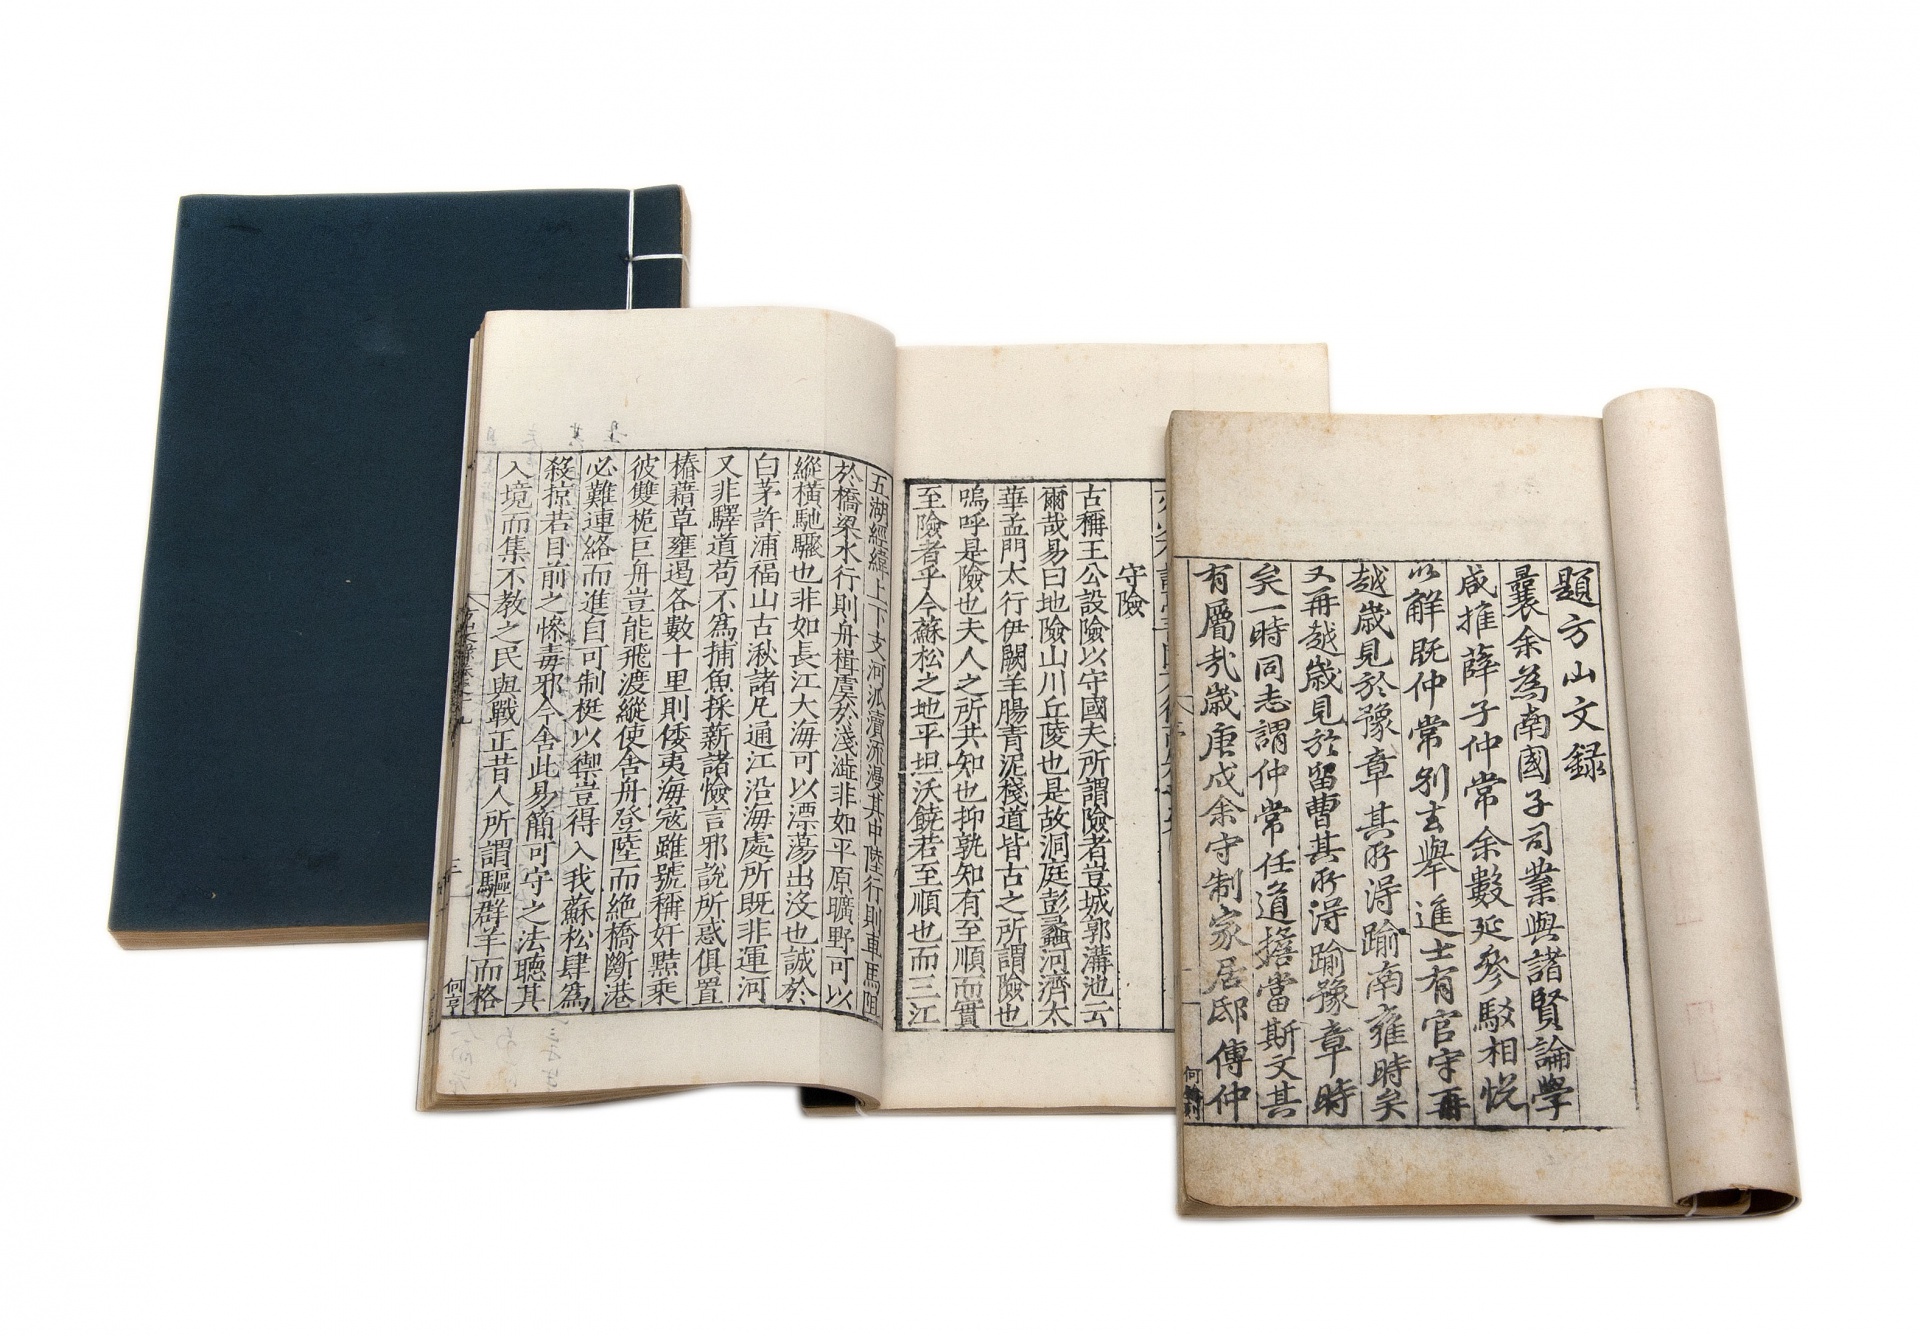 題方山文録
曩余為南國子司業與諸賢論學
咸推薛子仲常余數延參駁相悦
以解既仲常別去舉進士有官守再
越歲見於豫章其所得踰南雍時矣
又再越歲見於留曹其所得踰豫章時
矣一時同志謂仲常任道擔當斯文其
有屬哉歲庚戌余守制家居邸傳仲
守險
古稱王公設險以守國夫所謂險者豈城郭溝池云
爾哉易曰地險山川丘陵也是故洞庭彭蠡河濟太
華孟門太行伊闕羊腸青泥棧道皆古之所謂險也
嗚呼是險也夫人之所共知也抑孰知有至順而實
至險者乎今蘇松之地平坦沃饒若至順也而三江
五湖經緯上下支河派瀆沠漫其中陸行則車馬阻
於橋梁水行則舟楫虞於淺澁非如平原曠野可以
縱橫馳驟也非如長江大海可以漂蕩出沒也誠於
白茅許浦福山古湫諸凡通江沿海處所既非運河
又非驛道苟不為捕魚採薪諸憸言邪說所惑俱置
樁藉草壅遏各數十里則倭夷海寇雖號稱奸黠乗
彼雙桅巨舟豈能飛渡縱使舍舟登陸而絶橋斷港
必難連絡而進自可制梃以禦豈得入我蘇松肆為
殺掠若目前之慘毒邪今舍此易簡可守之法聽其
入境而集不教之民與戰正昔人所謂驅群羊而格